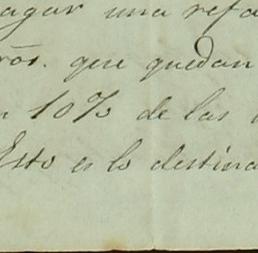 agar una refa
rõs. que quedan
10% de las
Esto es lo destina